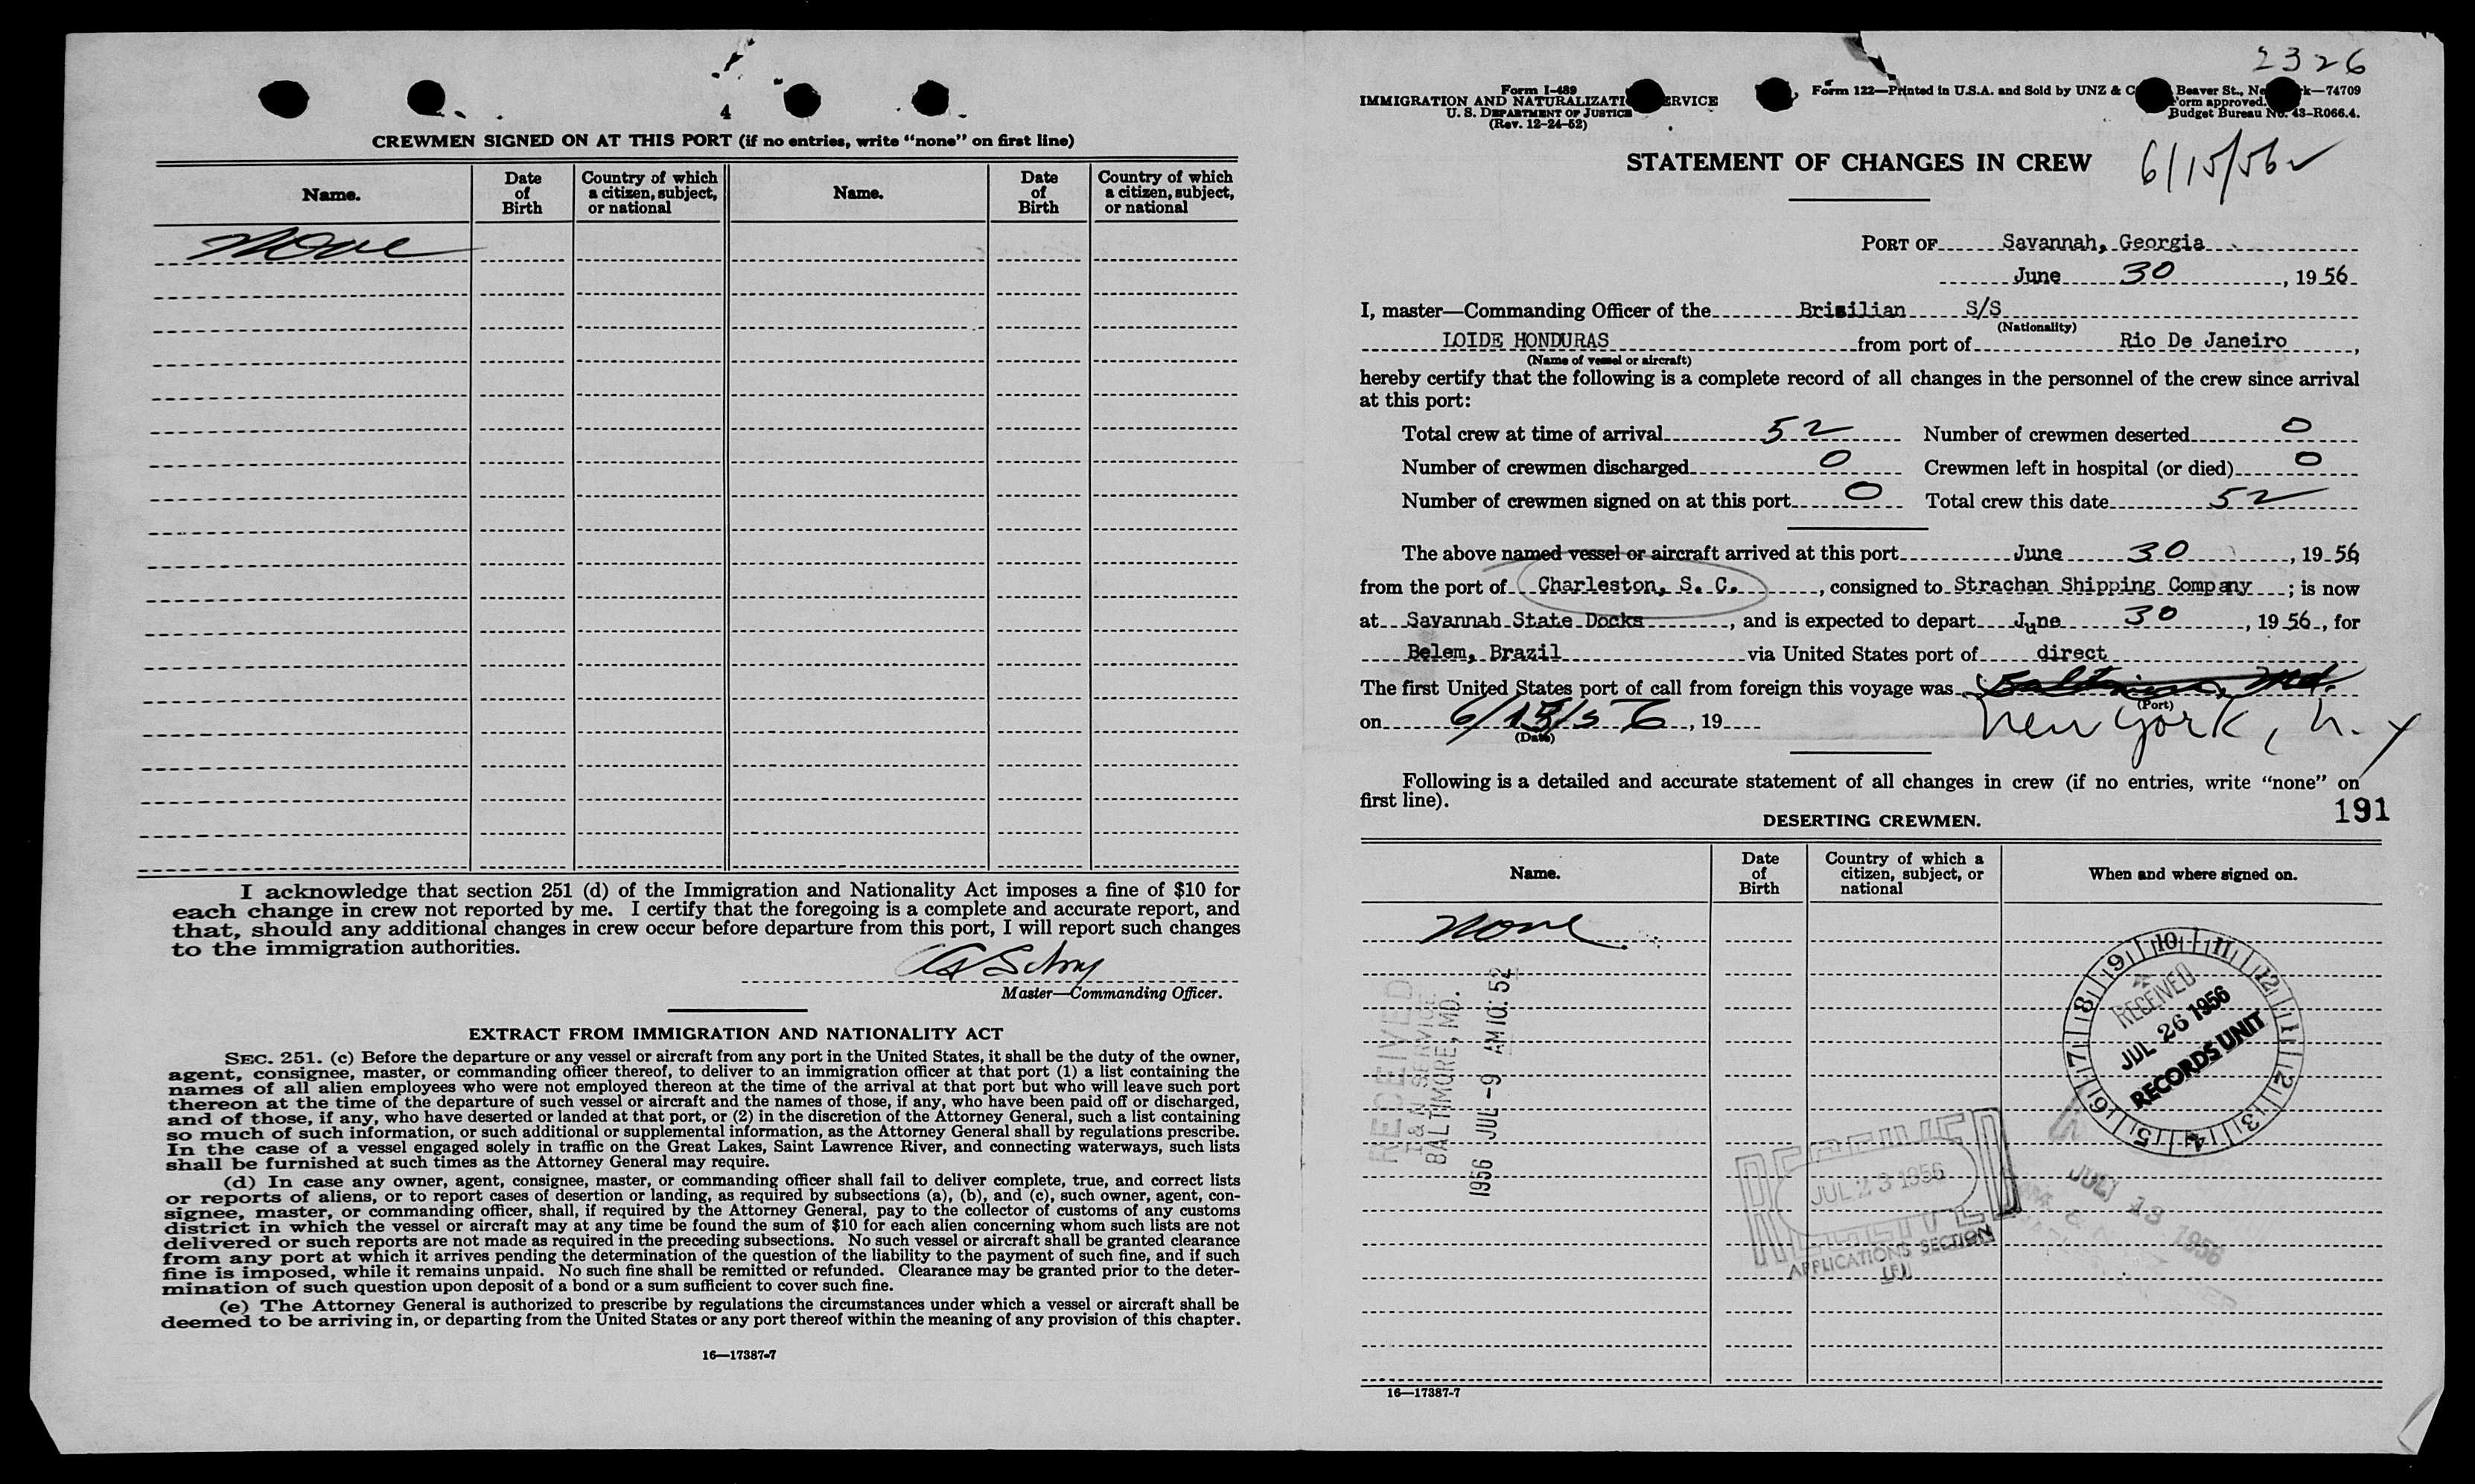 4
CREWMEN SIGNED ON AT THIS PORT (if no entries, write “none” on first line)
Name. Date of Birth Country of which a citizen, subject, or national Name. Date of Birth Country of which a citizen, subject, or national
None
I acknowledge that section 251 (d) of the Immigration and Nationality Act imposes a fine of $10 for
each change in crew not reported by me. I certify that the foregoing is a complete and accurate report, and
that, should any additional changes in crew occur before departure from this port, I will report such changes
to the immigration authorities.
Master—Commanding Officer.
EXTRACT FROM IMMIGRATION AND NATIONALITY ACT
SEC. 251. (c) Before the departure or any vessel or aircraft from any port in the United States, it shall be the duty of the owner,
agent, consignee, master, or commanding officer thereof, to deliver to an immigration officer at that port (1) a list containing the
names of all alien employees who were not employed thereon at the time of the arrival at that port but who will leave such port
thereon at the time of the departure of such vessel or aircraft and the names of those, if any, who have been paid off or discharged,
and of those, if any, who have deserted or landed at that port, or (2) in the discretion of the Attorney General, such a list containing
so much of such information, or such additional or supplemental information, as the Attorney General shall by regulations prescribe.
In the case of a vessel engaged solely in traffic on the Great Lakes, Saint Lawrence River, and connecting waterways, such lists
shall be furnished at such times as the Attorney General may require.
(d) In case any owner, agent, consignee, master, or commanding officer shall fail to deliver complete, true, and correct lists
or reports of aliens, or to report cases of desertion or landing, as required by subsections (a), (b), and (c), such owner, agent, con-
signee, master, or commanding officer, shall, if required by the Attorney General, pay to the collector of customs of any customs
district in which the vessel or aircraft may at any time be found the sum of $10 for each alien concerning whom such lists are not
delivered or such reports are not made as required in the preceding subsections. No such vessel or aircraft shall be granted clearance
from any port at which it arrives pending the determination of the question of the liability to the payment of such fine, and if such
fine is imposed, while it remains unpaid. No such fine shall be remitted or refunded. Clearance may be granted prior to the deter-
mination of such question upon deposit of a bond or a sum sufficient to cover such fine.
(e) The Attorney General is authorized to prescribe by regulations the circumstances under which a vessel or aircraft shall be
deemed to be arriving in, or departing from the United States or any port thereof within the meaning of any provision of this chapter.
16—17387-7
2326
Form I-489
IMMIGRATION AND NATURALIZATI RVICE
U. S. DEPARTMENT OF JUSTICE
(Rev. 12-24-52)
Form 122—Printed in U.S.A. and Sold by UNZ & C Beaver St., Ne k—74709
orm approved.
Budget Bureau No. 43-R066.4.
STATEMENT OF CHANGES IN CREW
6/15/56
PORT OF Savannah, Georgia
June 30, 1956
I, master—Commanding Officer of the Brisilian S/S
(Nationality)
LOIDE HONDURAS from port of Rio De Janeiro,
(Name of vessel or aircraft)
hereby certify that the following is a complete record of all changes in the personnel of the crew since arrival
at this port:
Total crew at time of arrival 52 Number of crewmen deserted 0
Number of crewmen discharged 0 Crewmen left in hospital (or died) 0
Number of crewmen signed on at this port 0 Total crew this date 52
The above named vessel or aircraft arrived at this port June 30, 1956
from the port of Charleston, S. C., consigned to Strachan Shipping Company; is now
at Savannah State Docks, and is expected to depart June 30, 1956, for
Belem, Brazil via United States port of direct
The first United States port of call from foreign this voyage was Baltimore, Md.
(Port)
on 6/15/56, 19 New York, N.Y
(Date)
Following is a detailed and accurate statement of all changes in crew (if no entries, write “none” on
first line).
191
DESERTING CREWMEN.
Name. Date of Birth Country of which a citizen, subject, or national When and where signed on.
None
RECEIVED
I & N SERVICE
BALTIMORE, MD.
1956 JUL -9 AM 10:52
9 10 11 12 1 2 3 4 5 6 7 8
RECEIVED
JUL 26 1956
RECORDS UNIT
RECEIVED
JUL 23 1956
APPLICATIONS SECTION
JUL 13 1956
16—17387-7